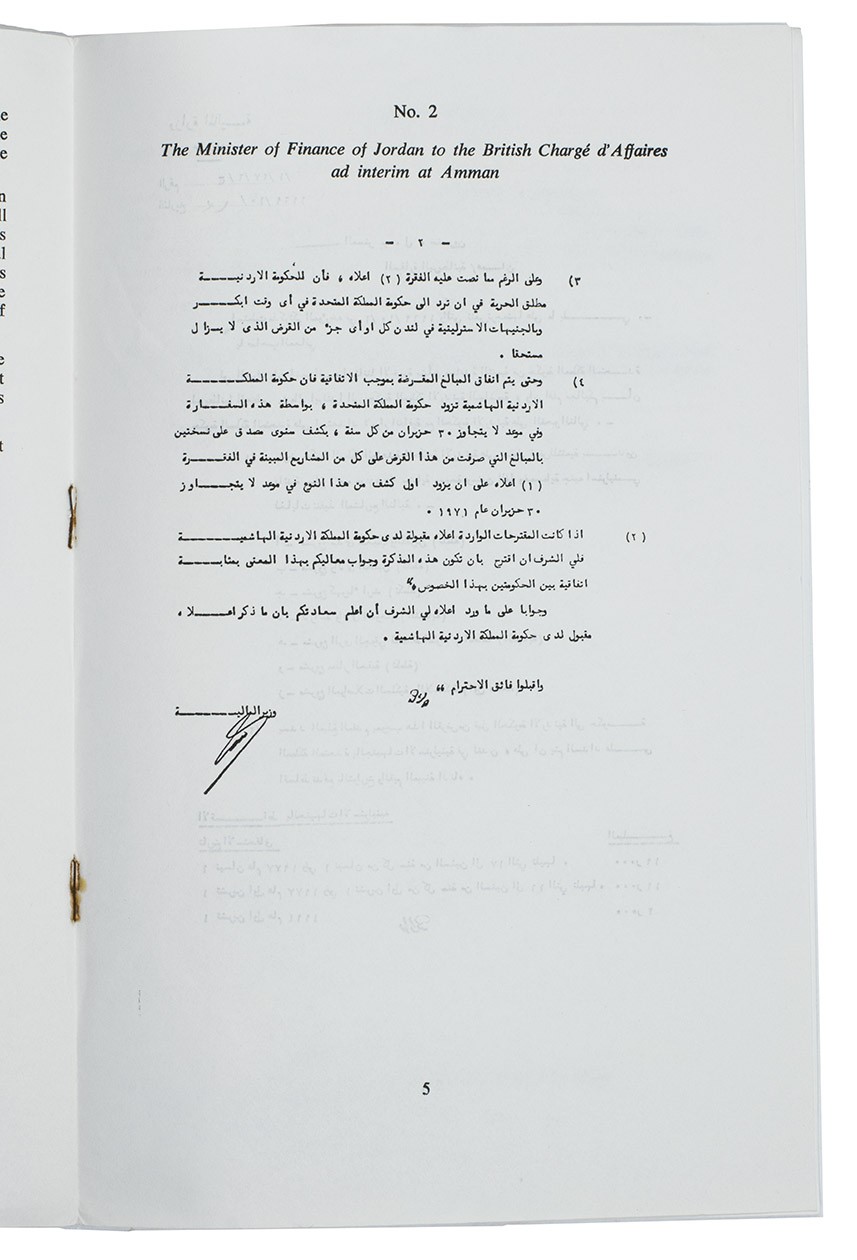 No. 2
The Minister of Finance of Jordan to the British Chargé d'Affaires
ad interim at Amman
- ٢ -
٣) وعلى الرغم مما نصت عليه الفقرة (٢) اعلاه ، فأن للحكومة الاردنيـــــة
مطلق الحرية في ان ترد الى حكومة المملكة المتحدة في أى وقت ابكـــــر
وبالجنيهات الاسترلينية في لندن كل او أى جزء من القرض الذى لا يـــزال
مستحقا .
٤) وحتى يتم انفاق المبالغ المقرضة بموجب الاتفاقية فان حكومة المملكـــــة
الاردنية الهاشمية تزود حكومة المملكة المتحدة ، بواسطة هذه السفـــارة
وفي موعد لا يتجاوز ٣٠ حزيران من كل سنة ، بكشف سنوى مصدق على نسختين
بالمبالغ التي صرفت من هذا القرض على كل من المشاريع المبينة في الفقـــرة
(١) اعلاه على ان يزود اول كشف من هذا النوع في موعد لا يتجـــاوز
٣٠ حزيران عام ١٩٧١ .
(٢) اذا كانت المقترحات الواردة اعلاه مقبولة لدى حكومة المملكة الاردنية الهاشميـــــة
فلي الشرف ان اقترح بان تكون هذه المذكرة وجواب معاليكم بهذا المعنى بمثابـــة
اتفاقية بين الحكومتين بهذا الخصوص "
وجوابا على ما ورد اعلاه لي الشرف أن اعلم سعادتكم بان ما ذكر اعـــــلاه ،
مقبول لدى حكومة المملكة الاردنية الهاشمية .
واقبلوا فائق الاحترام "
وزير الماليـــــــة
5